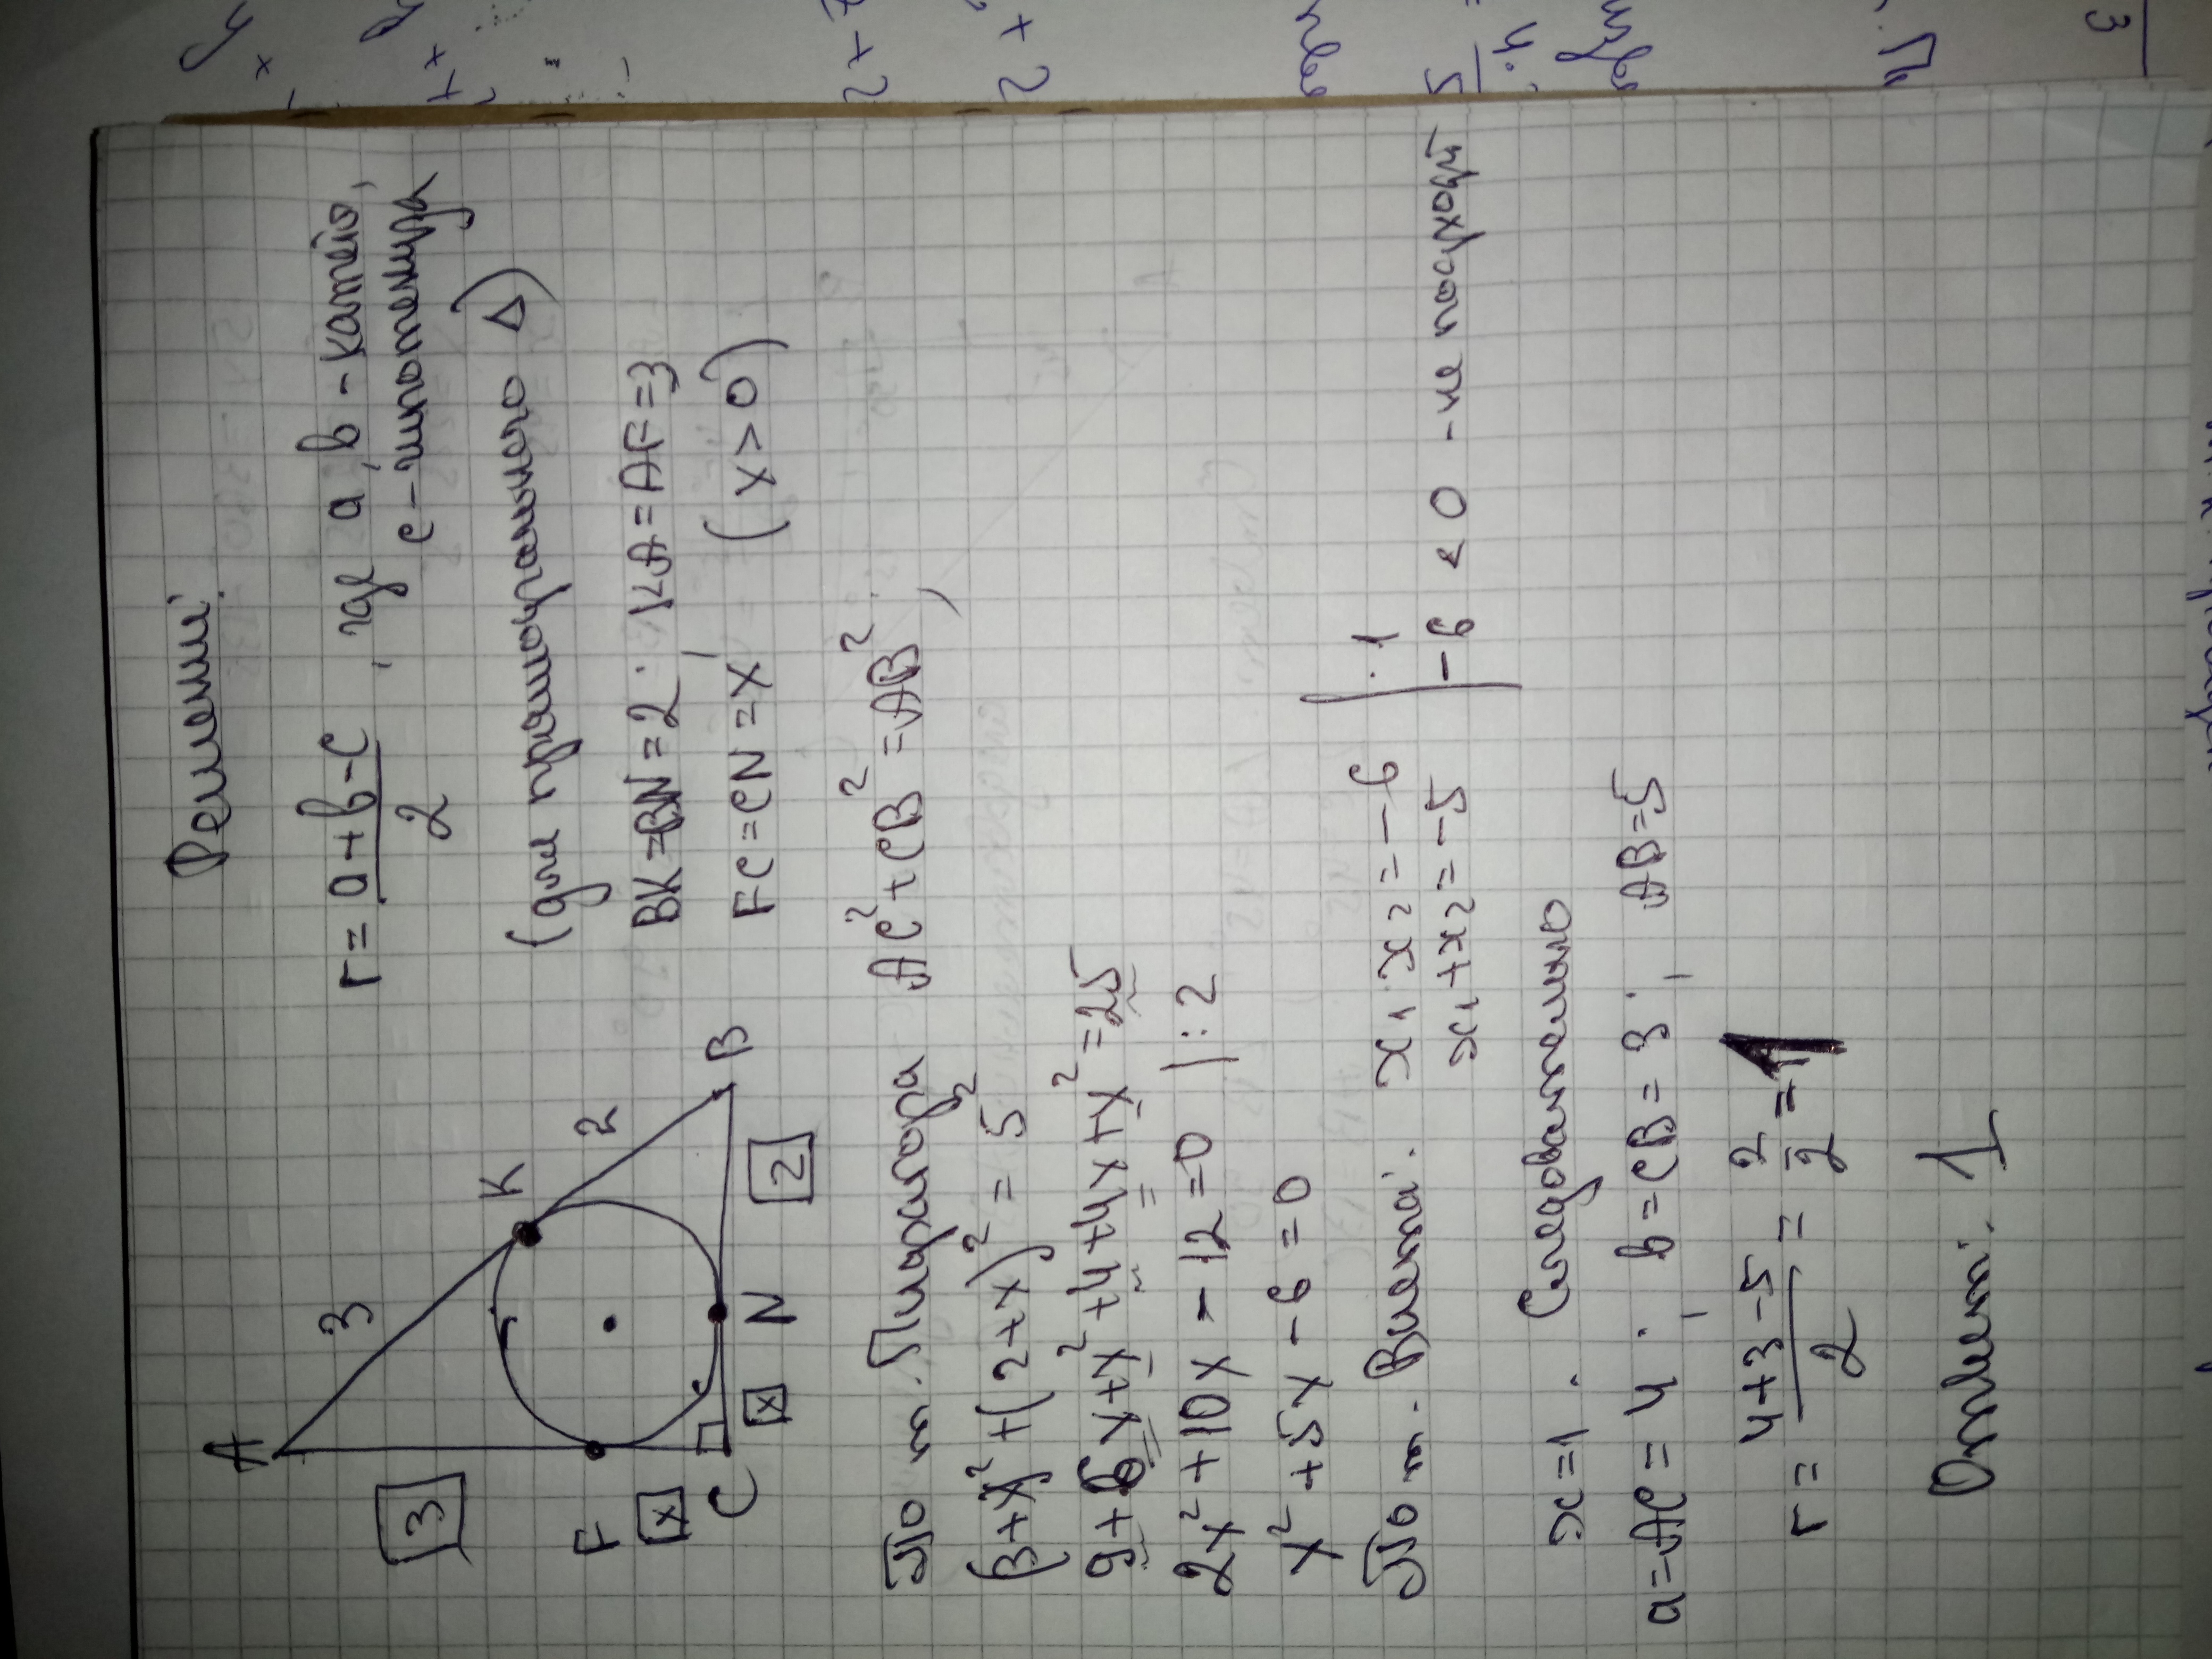 Решение:
A
3
K
2
B
3
F
x
C
x
N
2
r = (a+b-c)/2, где a, b - катеты,
c - гипотенуза
(для прямоугольного Δ)
BK=BN=2; KA=AF=3
FC=CN=x (x>0)
По т. Пифагора AC²+CB²=AB²
(3+x)²+(2+x)²=5²
9+6x+x²+4+4x+x²=25
2x²+10x-12=0 |:2
x²+5x-6=0
По т. Виета: x₁·x₂=-6 | 1
x₁+x₂=-5 | -6 < 0 - не подходит
x=1. Следовательно
a=AC=4; b=CB=3; AB=5
r = (4+3-5)/2 = 2/2 = 1
Ответ: 1